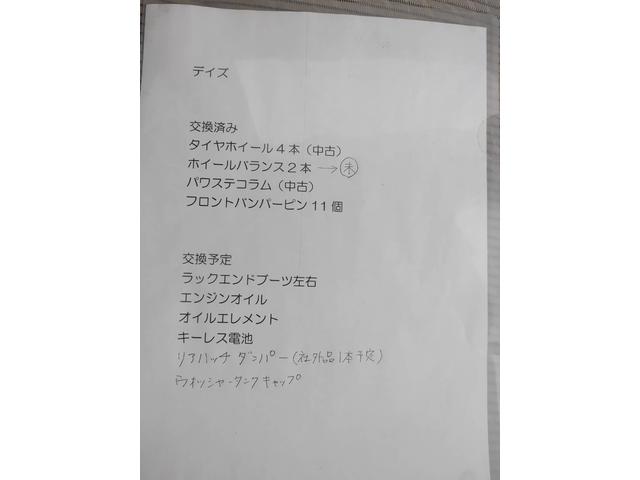 デイズ
交換済み
タイヤホイール4本（中古）
ホイールバランス2本 → 未
パワステコラム（中古）
フロントバンパーピン 11 個
交換予定
ラックエンドブーツ左右
エンジンオイル
オイルエレメント
キーレス電池
リアハッチ ダンパー（社外品1本予定）
ウォッシャータンクキャップ